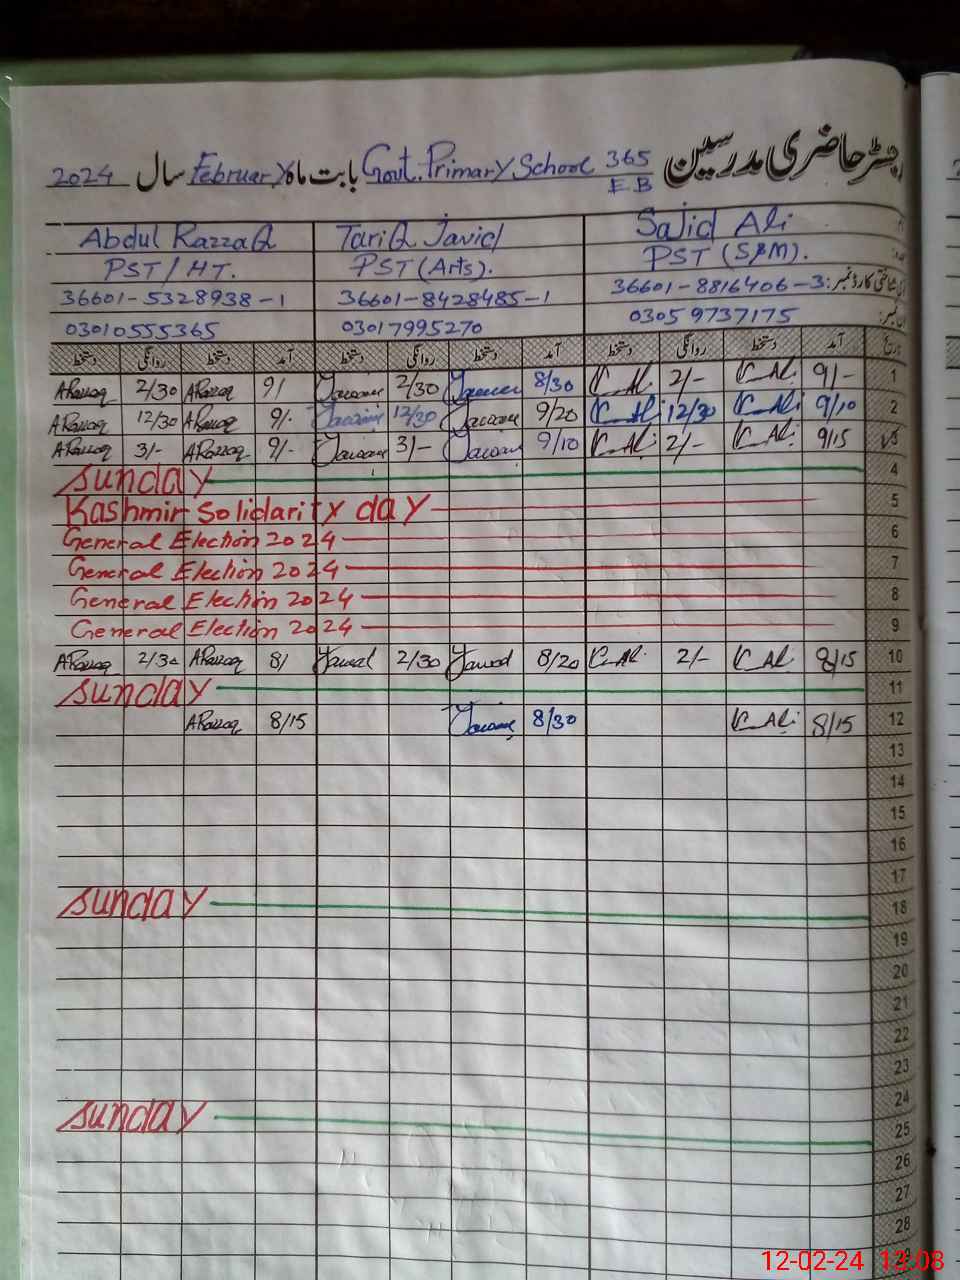 رجسٹر حاضری مدرسین Govt. Primary School 365 E.B بابت ماہ February سال 2024
Abdul RazzaQ TariQ Javid Sajid Ali
PST/HT. PST (Arts). PST (S&M).
36601-5328938-1 36601-8428485-1 36601-8816406-3
03010555365 03017995270 03059737175
دستخط روانگی دستخط آمد دستخط روانگی دستخط آمد دستخط روانگی دستخط آمد تاریخ
ARazzaq 2/30 ARazzaq 9/ 2/30 8/30 2/- 9/- 1
ARazzaq 12/30 ARazzaq 9/. 12/30 9/20 12/30 9/10 2
ARazzaq 3/- ARazzaq 9/- 3/- 9/10 2/- 9/15 3
Sunday 4
Kashmir Solidarity day 5
General Election 2024 6
General Election 2024 7
General Election 2024 8
General Election 2024 9
ARazzaq 2/30 ARazzaq 8/ 2/30 8/20 2/- 8/15 10
Sunday 11
ARazzaq 8/15 8/30 8/15 12
13
14
15
16
17
Sunday 18
19
20
21
22
23
24
Sunday 25
26
27
28
12-02-24 13:08